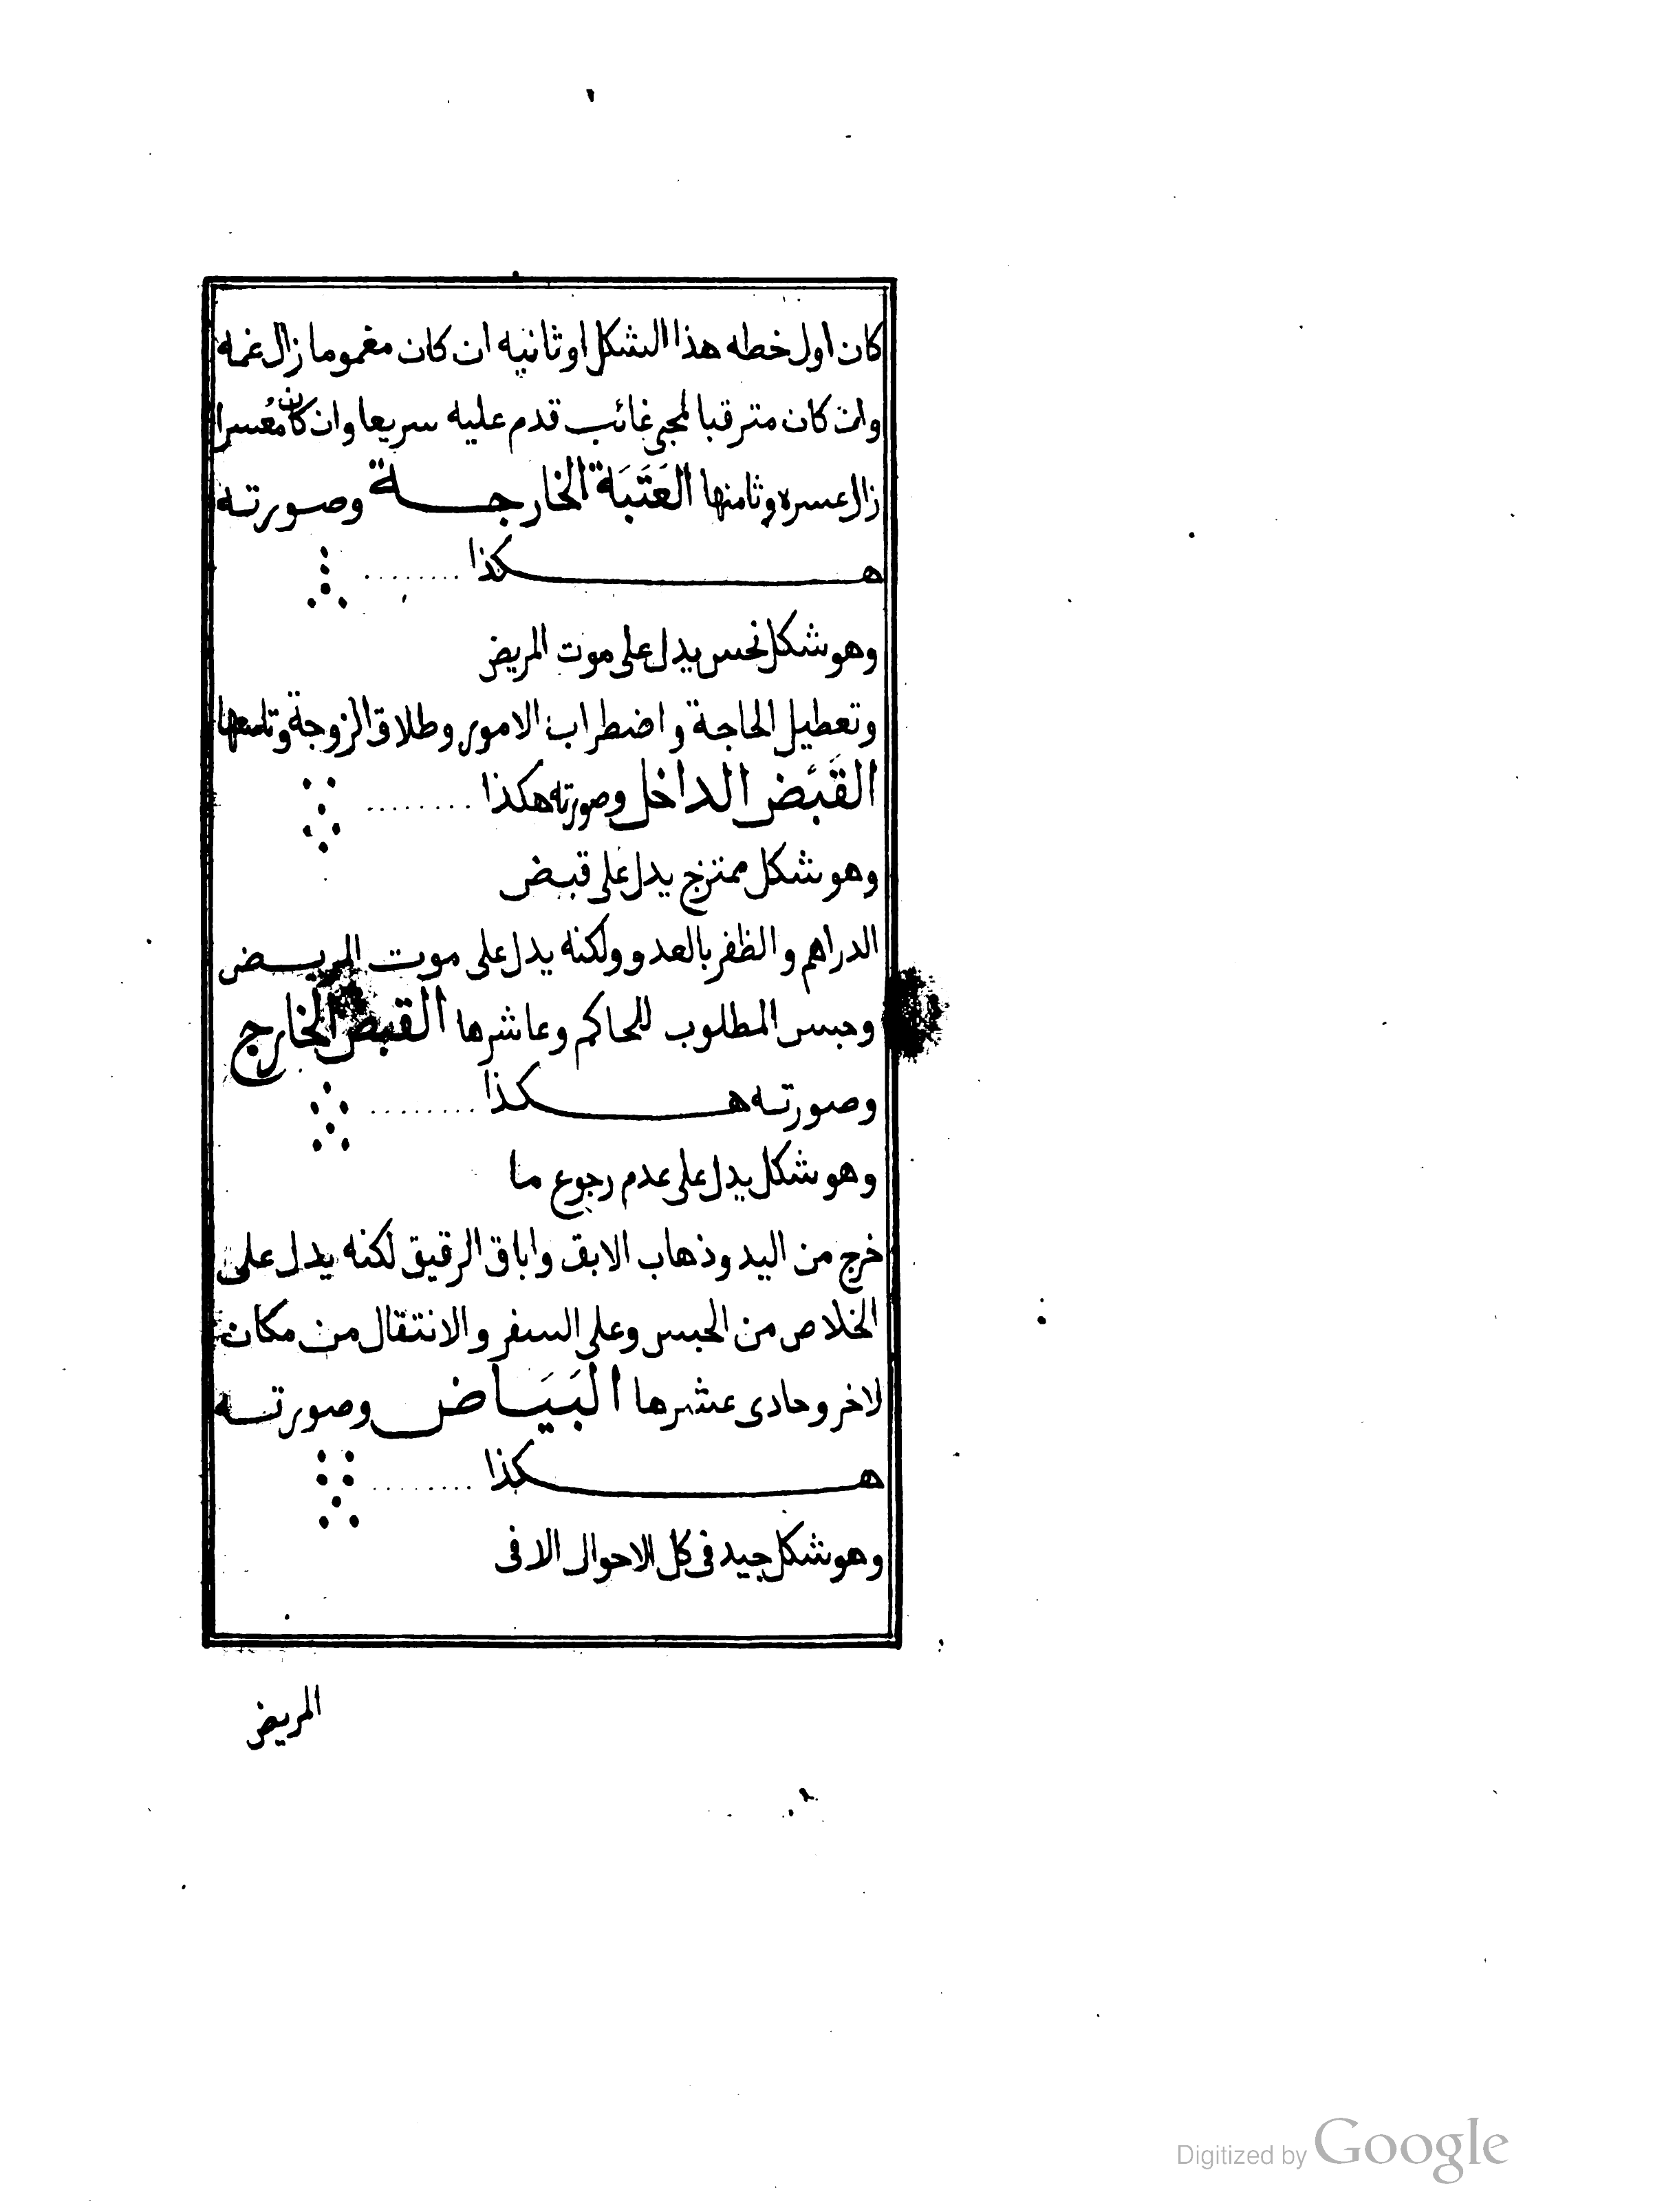 كان اول خطه هذا الشكل او ثانيه ان كان مغموما زال غمه
وان كان مترقبا لمجى غائب قدم عليه سريعا وان كان معسرا
زال عسره وثامنها العَتَبَة الخارجة وصورته
هكذا ........
وهو شكل نحس يدل على موت المريض
وتعطيل الحاجة واضطراب الامور وطلاق الزوجة وتاسعها
القَبَض الداخل وصورته هكذا ........
وهو شكل ممتزج يدل على قبض
الدراهم والظفر بالعدو ولكنه يدل على موت المريض
وحبس المطلوب للحاكم وعاشرها القبض الخارج
وصورته هكذا ........
وهو شكل يدل على عدم رجوع ما
خرج من اليد وذهاب الابق واباق الرقيق لكنه يدل على
الخلاص من الحبس وعلى السفر والانتقال من مكان
لاخر وحادى عشرها البَيَاض وصورته
هكذا ........
وهو شكل جيد فى كل الاحوال الا فى
المريض
Digitized by Google